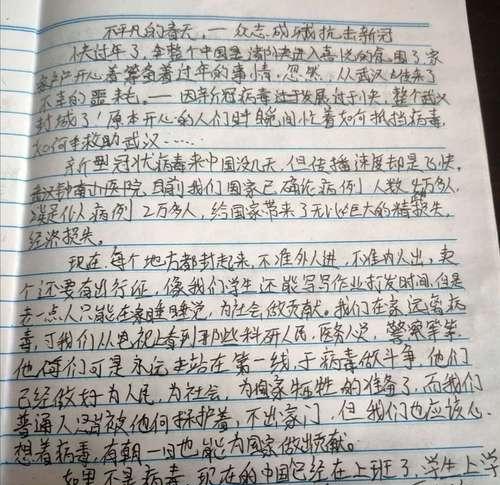 不平凡的春天,一众志成城抗击新冠
快过年了,全整个中国是沸快进入喜悦的氛围了,家
家户户开心着筹备着过年的事情,忽然,从武汉传来了
不幸的噩耗。——因新冠病毒发展过于快,整个武汉
封城了!原本开心的人们时瞬间忙着如何抵挡病毒,
如何去救助武汉……
新型冠状病毒来中国没几天,但传播速度却是飞快,
武汉 医院,目前我们国家已确诊病例人数4万多人,
疑是似人病例2万多人,给国家带来了无比巨大的精 损失,
经济损失。
现在,每个地方都封起来,不准外人进,不准内人出,
个还要有出行证,像我们学生还能写写作业打发时间,但是
老一点人只能在家睡睡觉,为社会做贡献。我们在家远离病
毒,可我们从电视上看到那些科研人民,医务人员,警察军
他们可是永远 站在第一线,于病毒做斗争,他们
已经做好为人民,为社会,为国家牺牲的准备了,而我们
普通人只 被他们保护着,不出家门,但我们也应该心
想着病毒,有朝一日也能为国家做出贡献。
如果不是病毒,现在的中国已经在上班了,学生上学